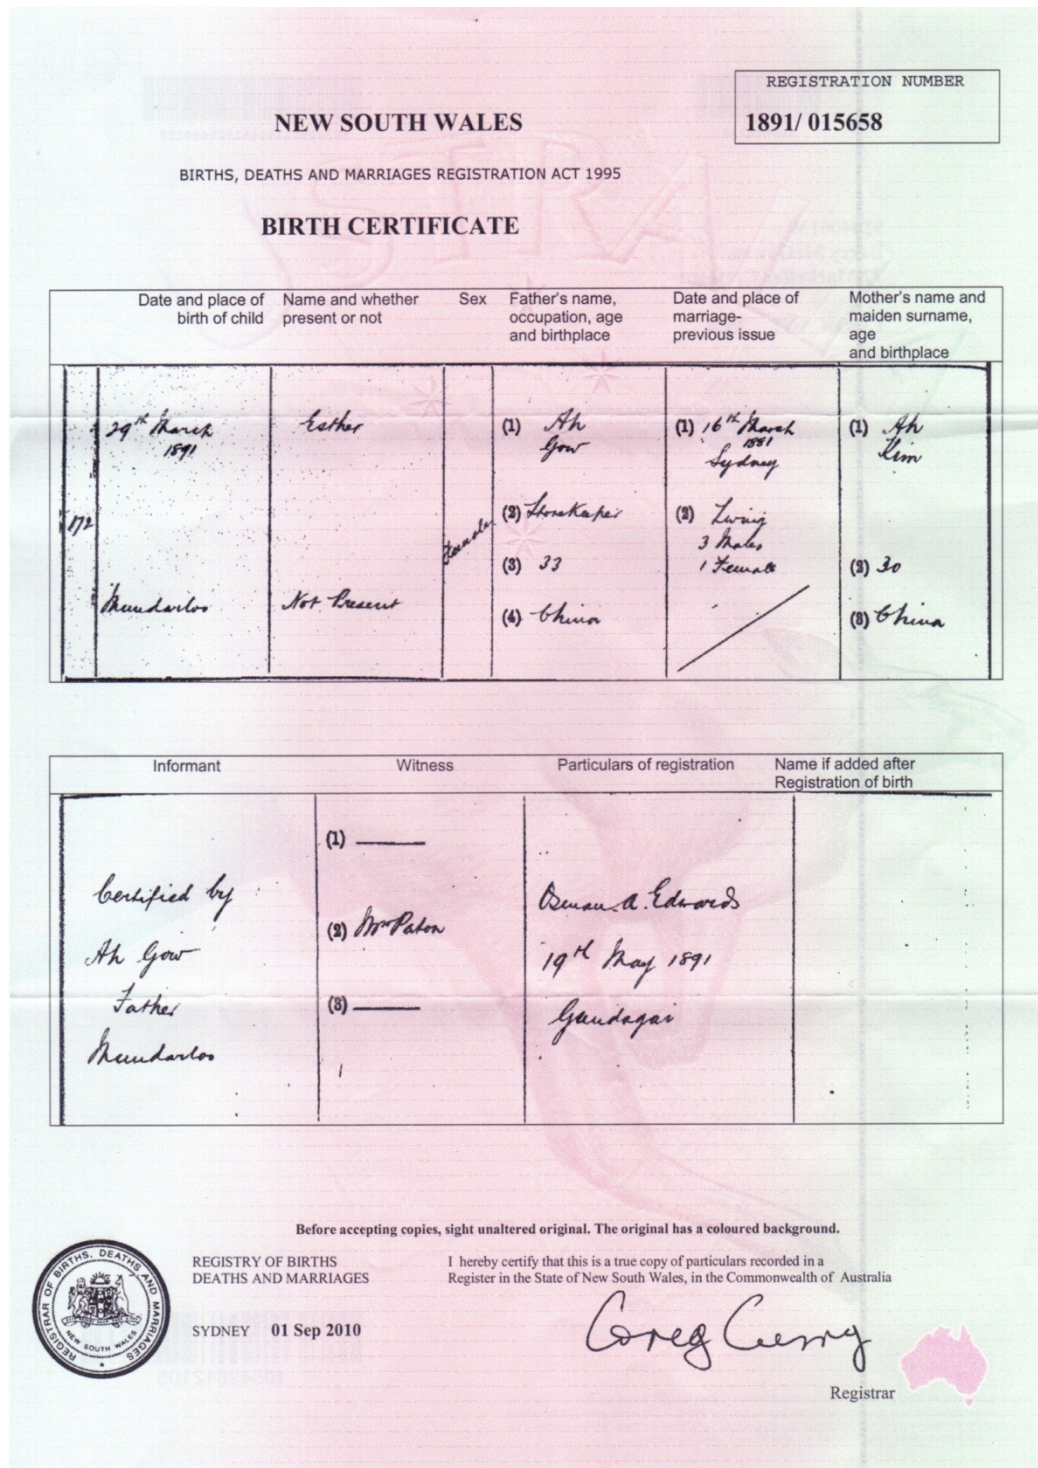 REGISTRATION NUMBER
1891/ 015658
NEW SOUTH WALES
BIRTHS, DEATHS AND MARRIAGES REGISTRATION ACT 1995
BIRTH CERTIFICATE
Date and place of birth of child
Name and whether present or not
Sex
Father's name, occupation, age and birthplace
Date and place of marriage- previous issue
Mother's name and maiden surname, age and birthplace
172
29th March
1891
Mundarloo
Esther
Not Present
Female
(1) Ah
Gow
(2) Storekeeper
(3) 33
(4) China
(1) 16th March
1881
Sydney
(2) Living
3 Males
1 Female
(1) Ah
Kim
(2) 30
(3) China
Informant
Witness
Particulars of registration
Name if added after
Registration of birth
Certified by
Ah Gow
Father
Mundarloo
(1)
(2) Mrs Paton
(3)
Osman A. Edwards
19th May 1891
Gundagai
Before accepting copies, sight unaltered original. The original has a coloured background.
REGISTRAR OF BIRTHS, DEATHS AND MARRIAGES
NEW SOUTH WALES
REGISTRY OF BIRTHS
DEATHS AND MARRIAGES
SYDNEY 01 Sep 2010
I hereby certify that this is a true copy of particulars recorded in a
Register in the State of New South Wales, in the Commonwealth of Australia
Greg Curry
Registrar